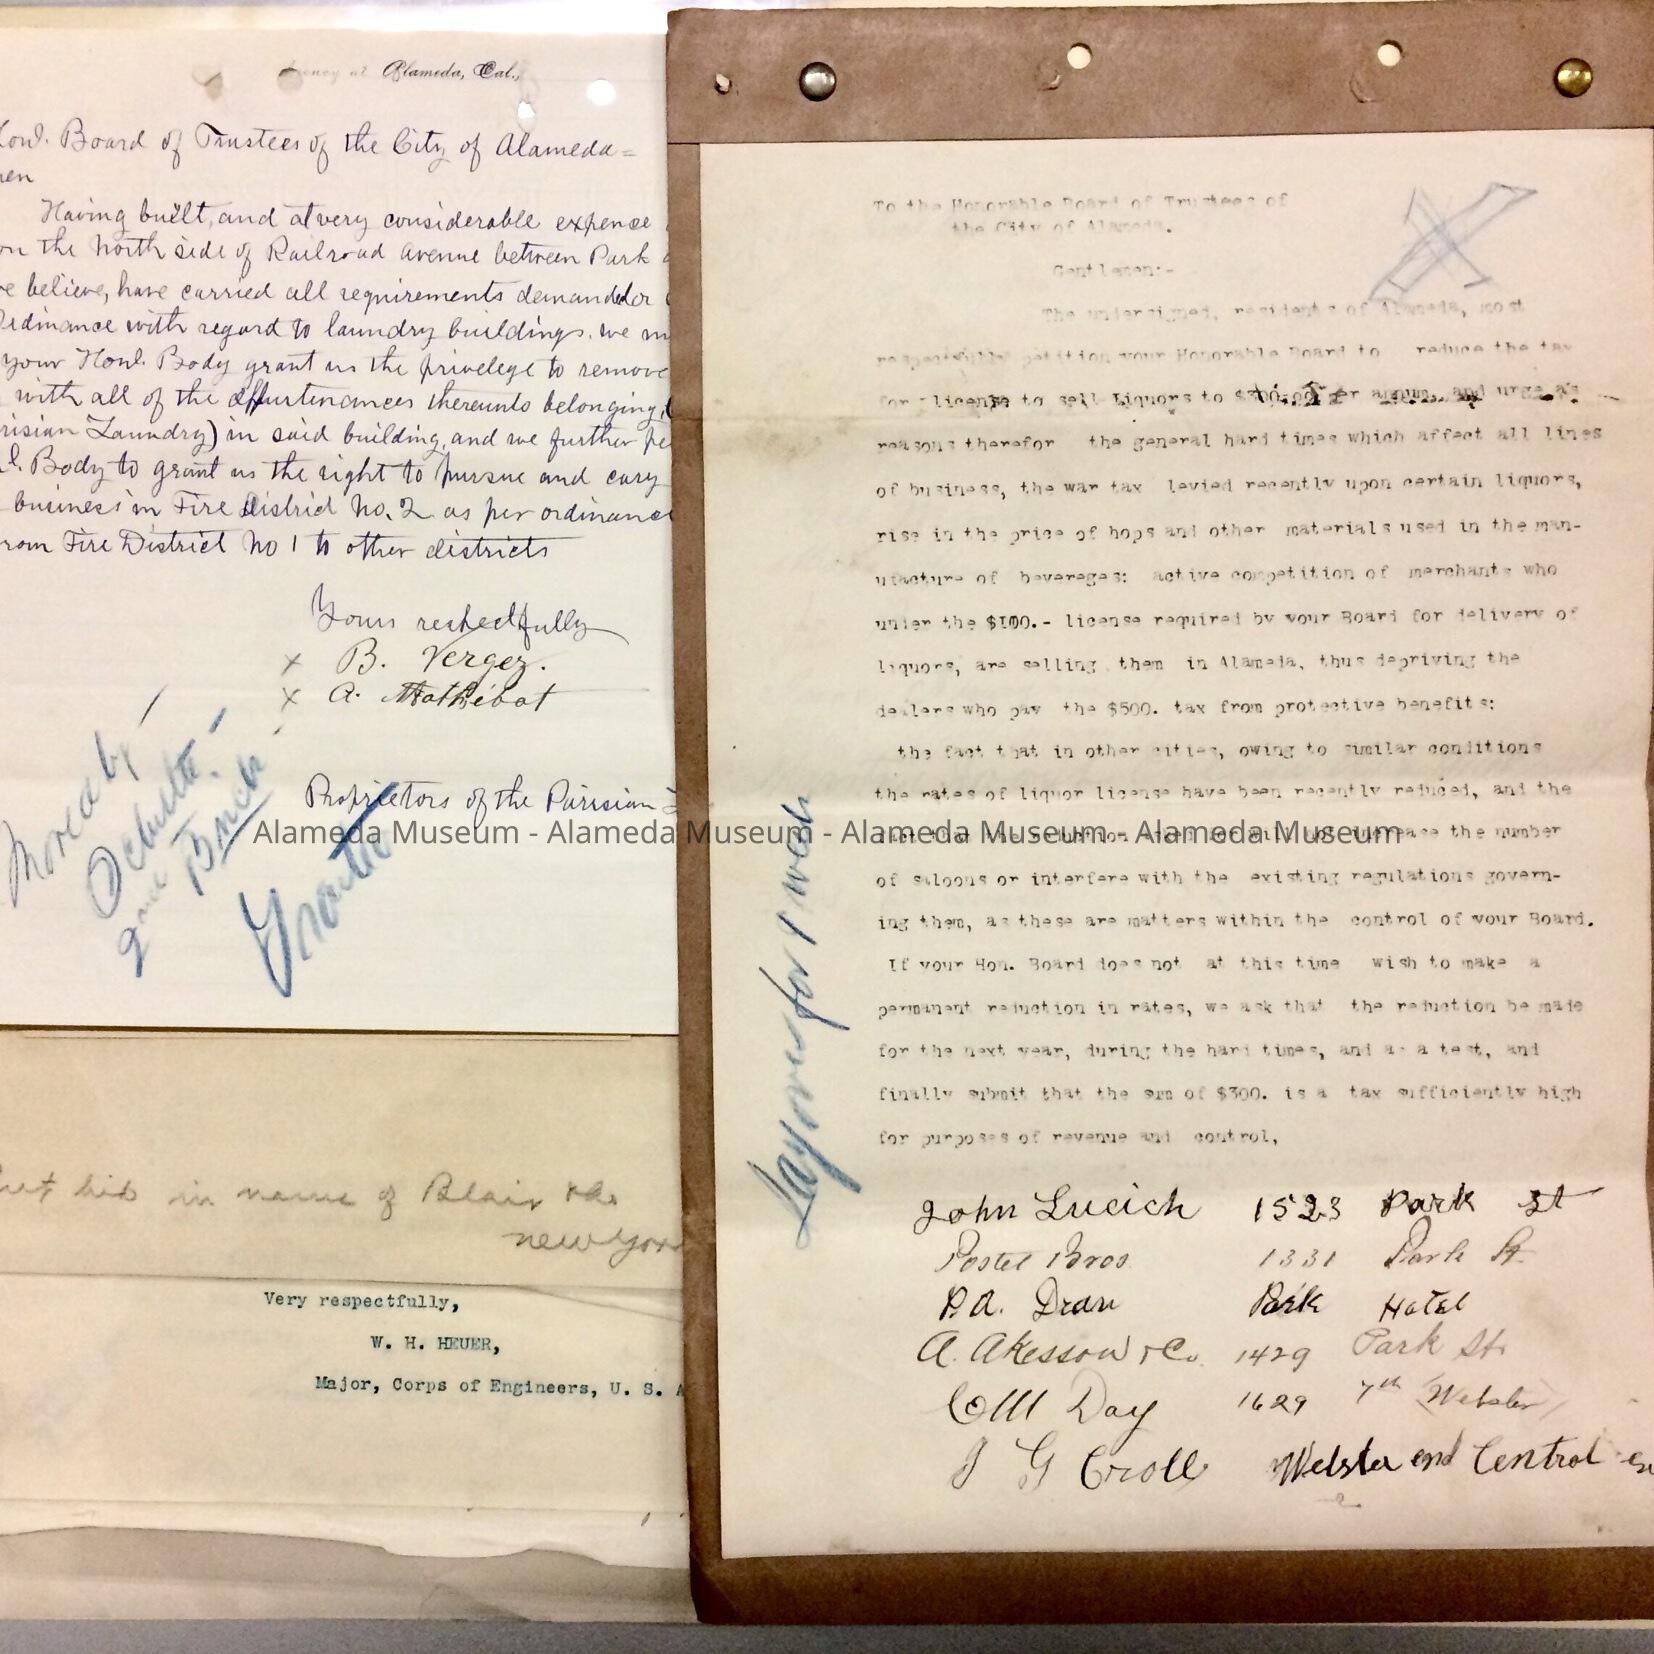 Alameda, Cal.,
Board of Trustees of the City of Alameda =
Having built, and at very considerable expense
on the North side of Railroad Avenue between Park
we believe, have carried all requirements demanded or
Ordinance with regard to laundry buildings. we
your Honl. Body grant us the privelege to remove
with all of the appurtenances thereunto belonging,
risian Laundry) in said building, and we further pe
Body to grant us the right to pursue and cary
business in Fire District No. 2 as per ordinance
rom Fire District No 1 to other districts
Yours respectfully
x B. Vergez.
x A. Mathebat
Proprietors of the Parisian
Moved by
Schulte
and
Granted
bid in name of Blair the
new York
Very respectfully,
W. H. HEUER,
Major, Corps of Engineers, U. S. A
To the Honorable Board of Trustees of
the City of Alameda.
Gentlemen:-
The undersigned, residents of Alameda, most
respectfully petition your Honorable Board to reduce the tax
for license to sell Liquors to $300.00 per annum, and urge as
reasons therefor the general hard times which affect all lines
of business, the war tax levied recently upon certain liquors,
rise in the price of hops and other materials used in the man-
ufacture of bevereges: active competition of merchants who
under the $100.- license required by your Board for delivery of
liquors, are selling them in Alameda, thus depriving the
dealers who pay the $500. tax from protective benefits:
the fact that in other cities, owing to similar conditions
the rates of liquor license have been recently reduced, and the
fact that the reduction asked for will not increase the number
of saloons or interfere with the existing regulations govern-
ing them, as these are matters within the control of your Board.
If your Hon. Board does not at this time wish to make a
permanent reduction in rates, we ask that the reduction be made
for the next year, during the hard times, and as a test, and
finally submit that the sum of $300. is a tax sufficiently high
for purposes of revenue and control,
Lay over for 1 week
John Lucich 1523 Park St
Postel Bros. 1331 Park St.
P.A. Dran Park Hotel
A. Akesson & Co. 1429 Park St.
Day 1629 7th Webster
J G Croll Webster and Central
Alameda Museum - Alameda Museum - Alameda Museum - Alameda Museum